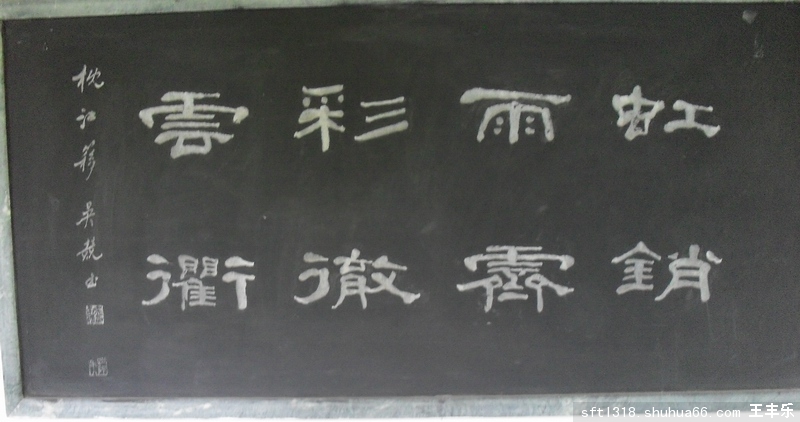 虹銷
雨霽
彩徹
雲衢
枕江簃 吴兢书
sftl318 shuhua66.com 王丰乐